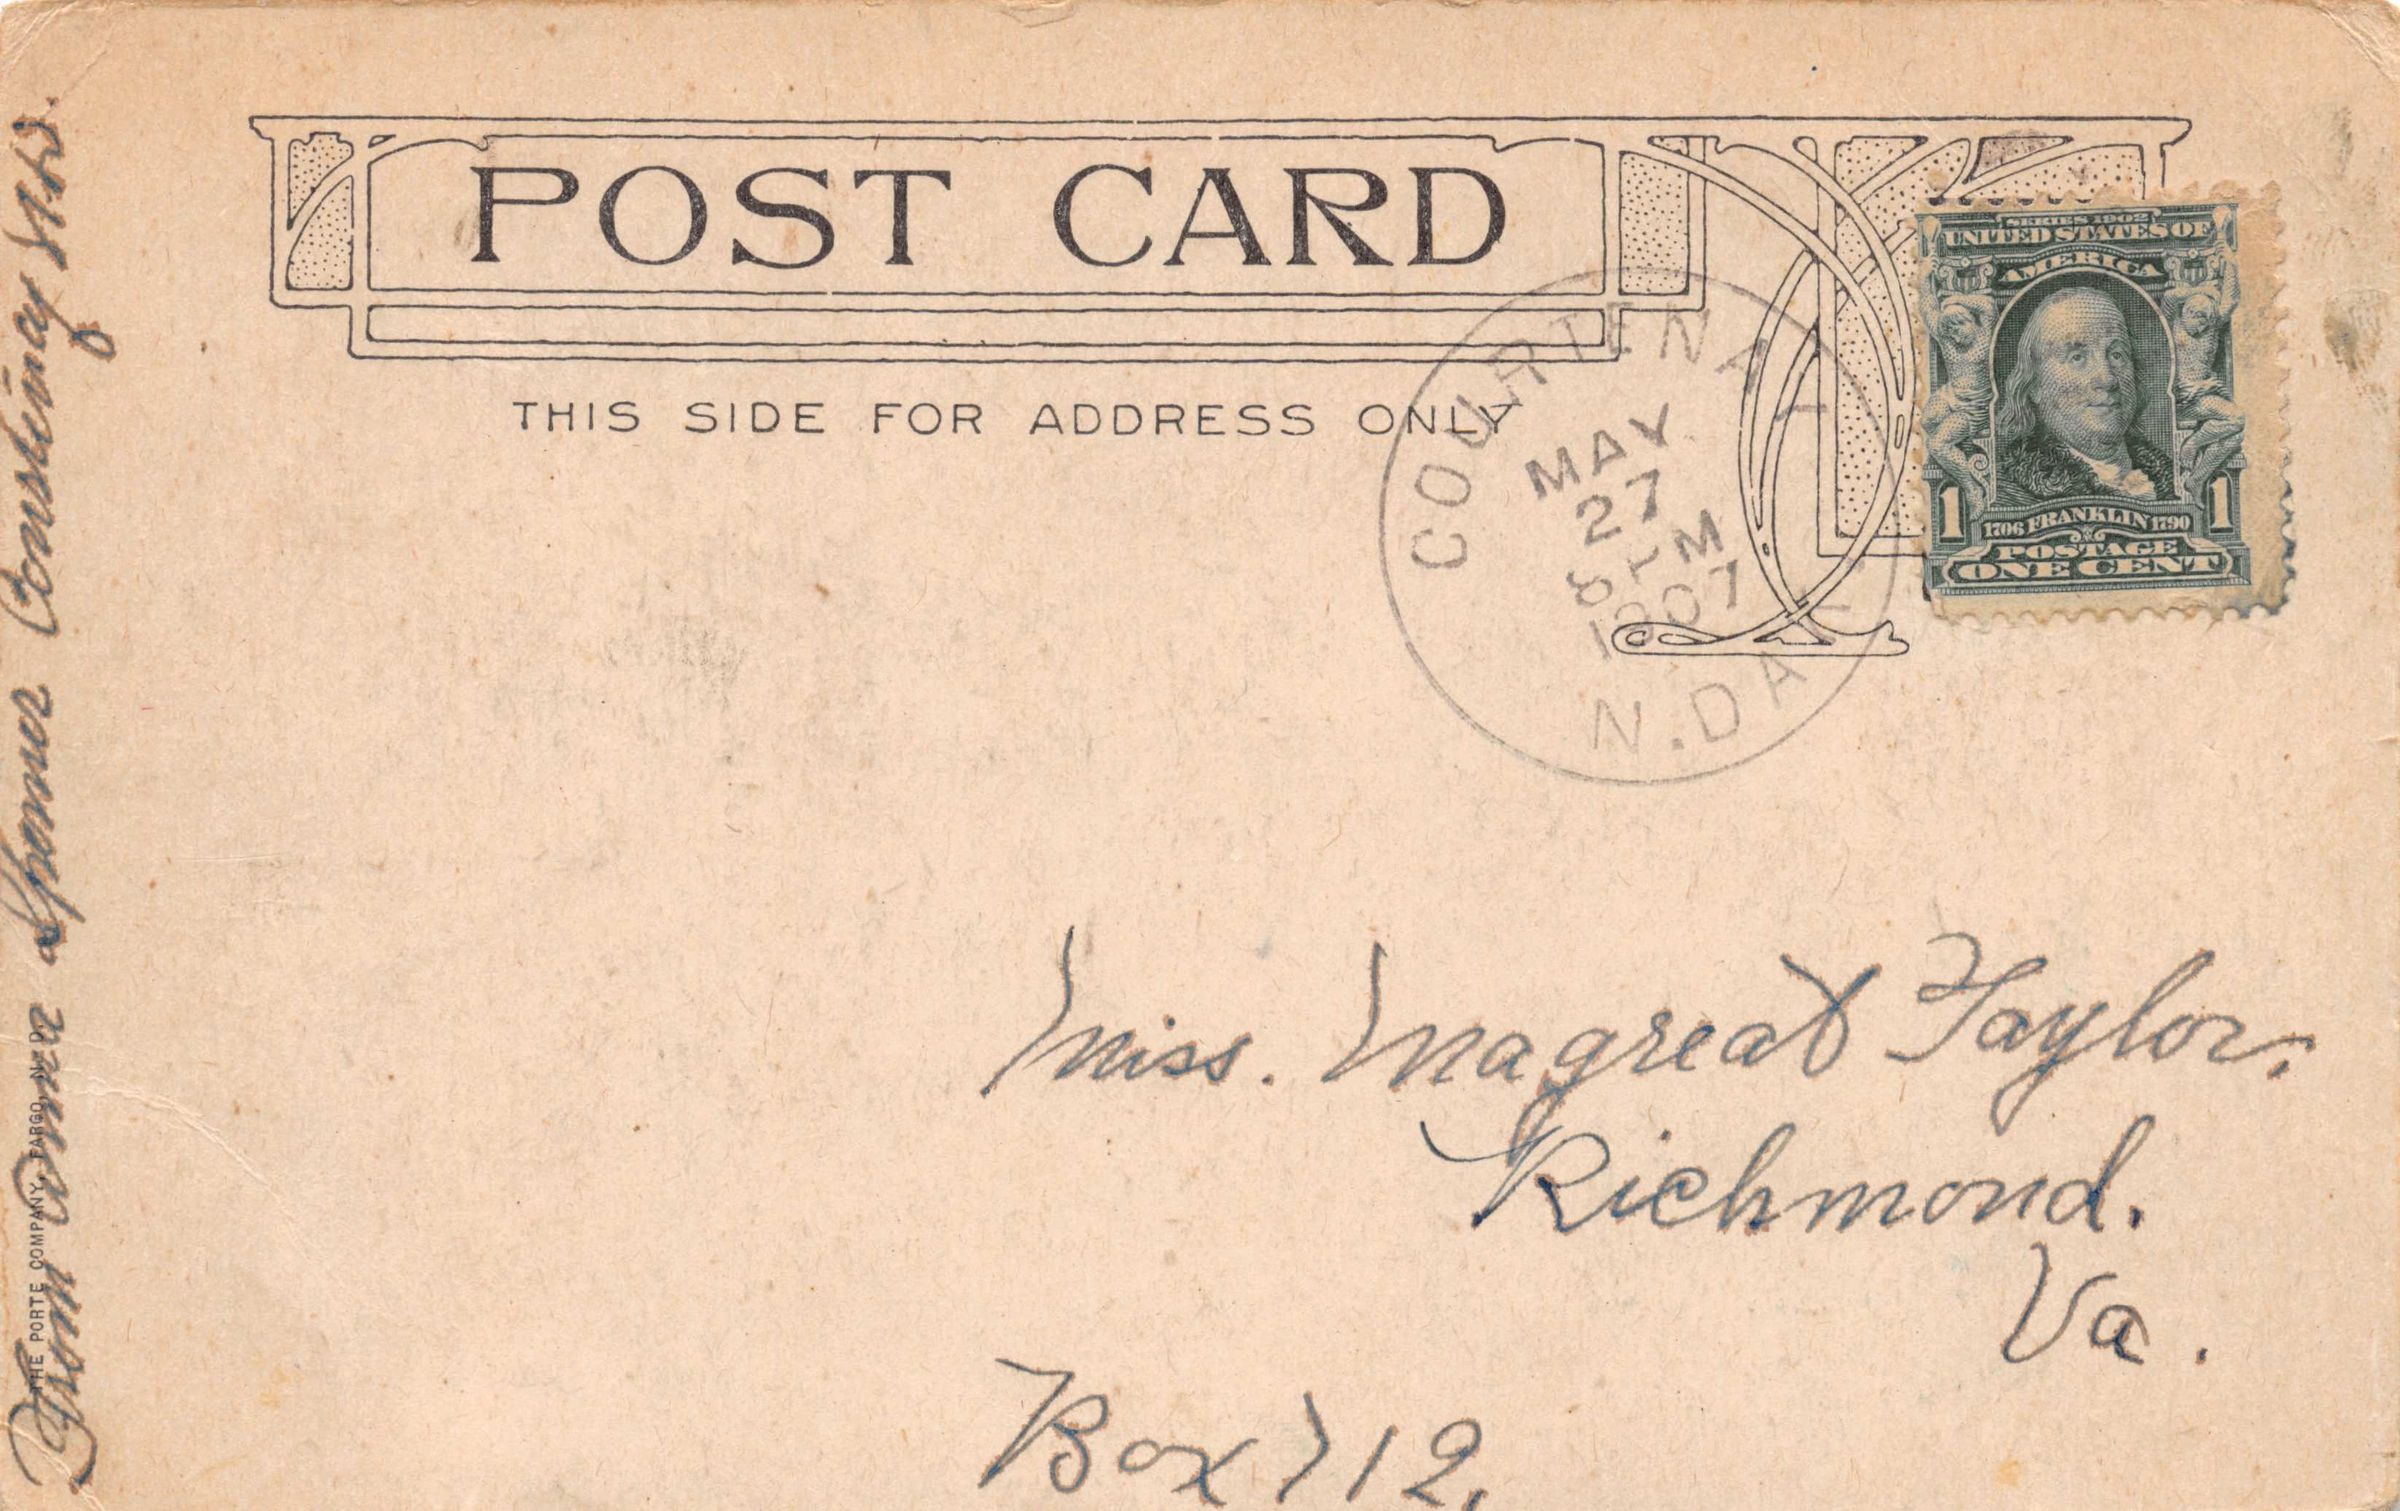 POST CARD
THIS SIDE FOR ADDRESS ONLY
COURTENAY
MAY
27
PM
1907
N. DAK
SERIES 1902
UNITED STATES OF
AMERICA
1 1
1706 FRANKLIN 1790
POSTAGE
ONE CENT
Miss. Magreat Taylor.
Richmond.
Va.
Box 712.
From Spomer
THE PORTE COMPANY, FARGO, N. D.